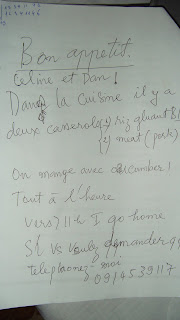 Bon appetit.
Celine et Dan!
Dans la cuisine il y a
deux casserole 1) riz gluant
2) meat (pork)
On mange avec cucumber!
Tout à l'heure
vers 11h I go home
SI vs voulez demander
telephonez-moi
0914539117